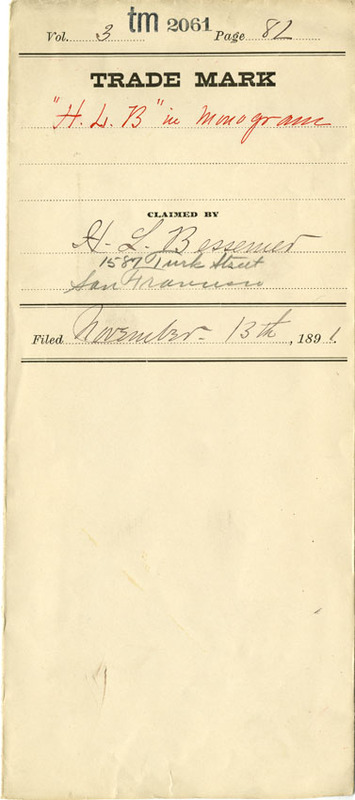 tm 2061
Vol. 3 Page 82
TRADE MARK
"H. L. B" in Monogram
CLAIMED BY
H. L. Bessemer
1587 Turk Street
San Francisco
Filed November 13th, 1891.